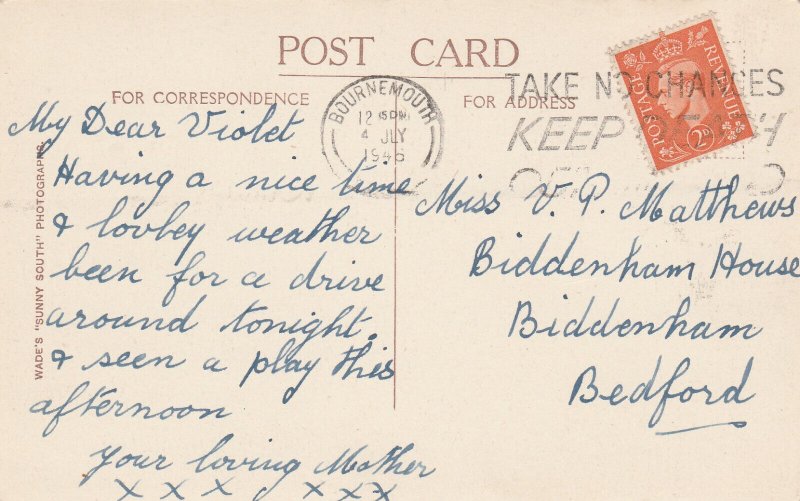 POST CARD
FOR CORRESPONDENCE
FOR ADDRESS
BOURNEMOUTH
12 15 PM
4 JLY
1946
TAKE NO CHANCES
KEEP DEATH
OFF
POSTAGE
REVENUE
2D
My Dear Violet
Having a nice time
& lovbey weather
been for a drive
around tonight.
& seen a play this
afternoon
Your loving Mother
X X X X X X
Miss V. P. Matthews
Biddenham House
Biddenham
Bedford
WADE'S "SUNNY SOUTH" PHOTOGRAPHS